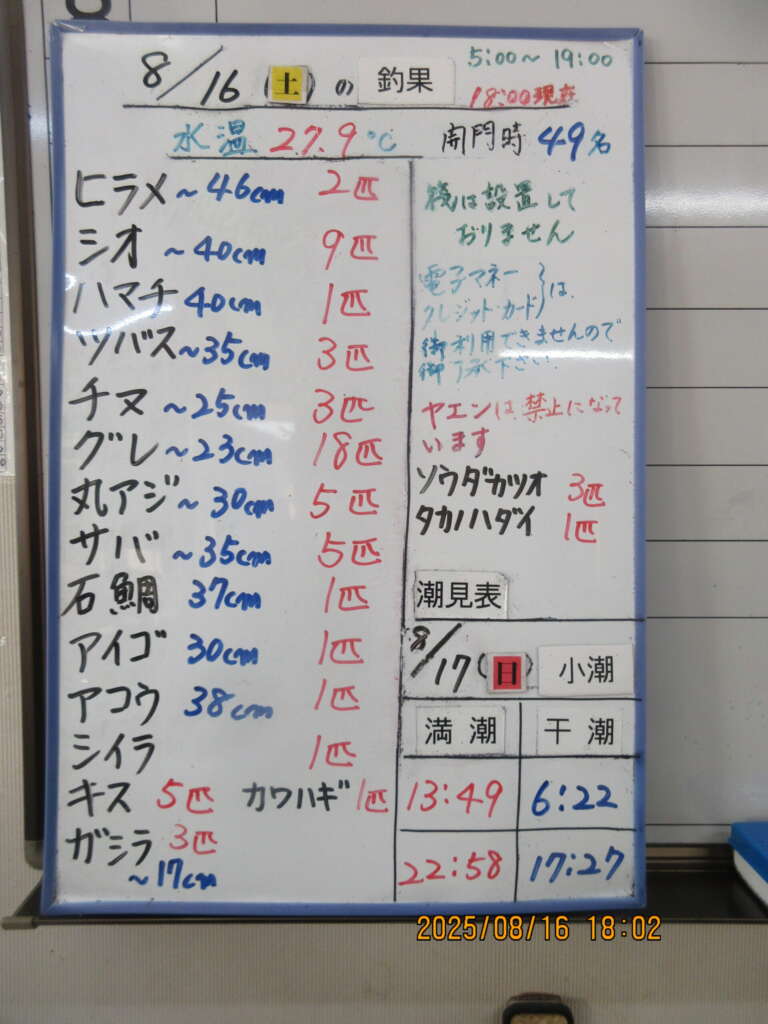 8/16(土)の 釣果
5:00~19:00
18:00現在
水温 27.9℃
開門時 49名
ヒラメ ~46cm 2匹
シオ ~40cm 9匹
ハマチ 40cm 1匹
ツバス ~35cm 3匹
チヌ ~25cm 3匹
グレ ~23cm 18匹
丸アジ ~30cm 5匹
サバ ~35cm 5匹
石鯛 37cm 1匹
アイゴ 30cm 1匹
アコウ 38cm 1匹
シイラ 1匹
キス 5匹 カワハギ 1匹
ガシラ 3匹
~17cm
は設置して
おりません
電子マネー
クレジットカード}は
御利用できませんので
御了承下さい.
ヤエンは禁止になって
います
ソウダカツオ 3匹
タカノハダイ 1匹
潮見表
8/17(日) 小潮
満潮 干潮
13:49 6:22
22:58 17:27
2025/08/16 18:02